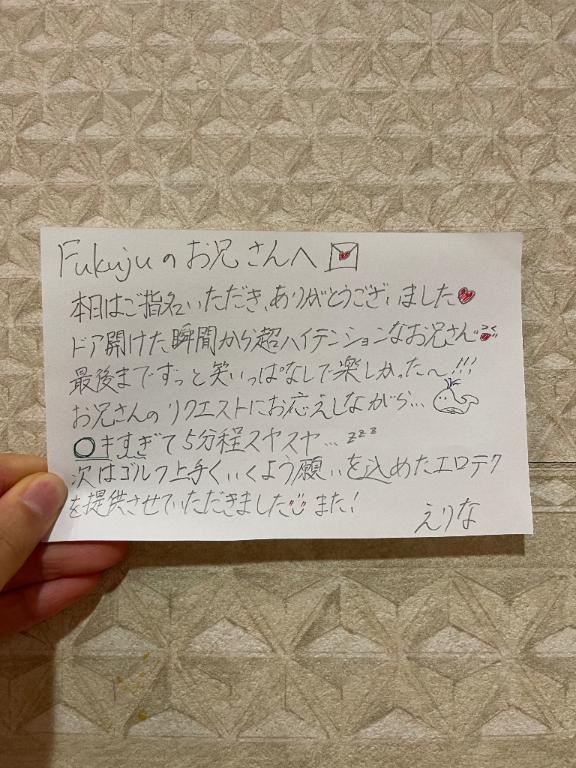 Fukujuのお兄さんへ
本日はご指名いただき、ありがとうございました
ドア開けた瞬間から超ハイテンションなお兄さん
最後までずっと笑いっぱなしで楽しかった〜!!!
お兄さんのリクエストにお応えしながら...
○キすぎて5分程スヤスヤ... zzz
次はゴルフ上手くいくよう願いを込めたエロテク
を提供させていただきました また!
えりな